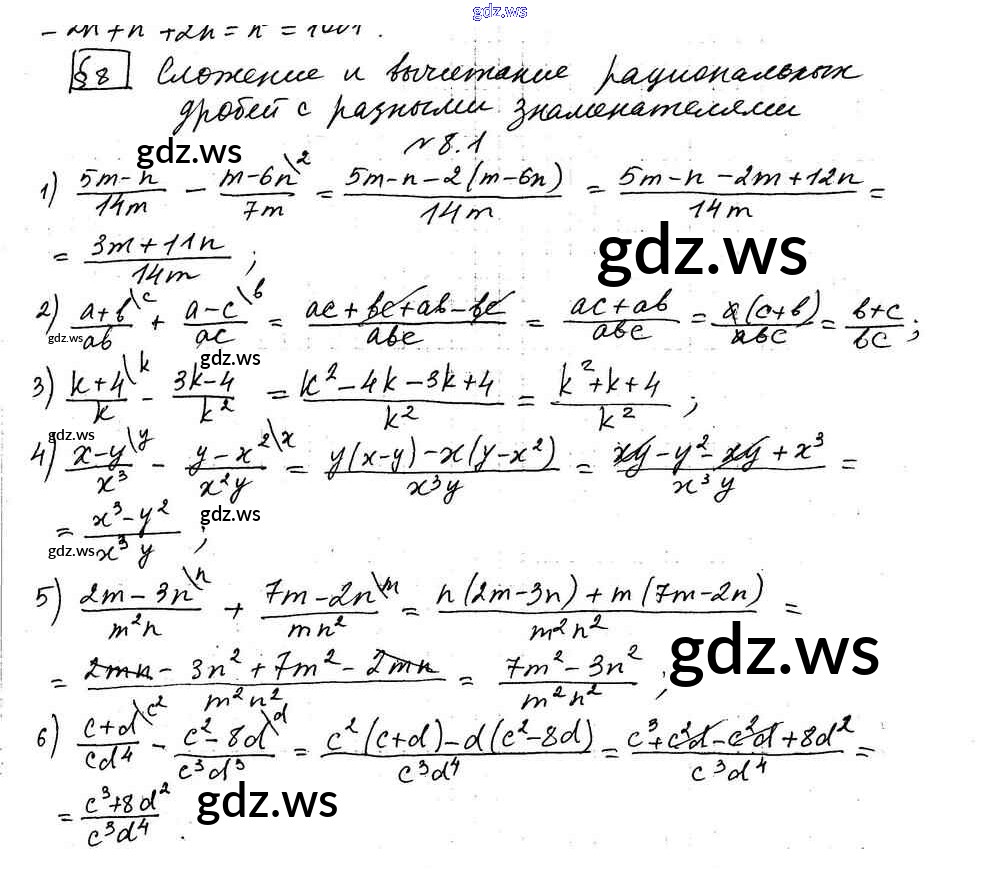 gdz.ws
- 2n + n + 2n = n = 1001.
§8 Сложение и вычетание рациональных
дробей с разными знаменателями
gdz.ws
№8.1
1) (5m-n)/(14m) - (m-6n\2)/(7m) = (5m-n-2(m-6n))/(14m) = (5m-n-2m+12n)/(14m) =
= (3m+11n)/(14m) ;
gdz.ws
2) (a+b\c)/(ab) + (a-c\b)/(ac) = (ac+bc+ab-bc)/(abc) = (ac+ab)/(abc) = (a(c+b))/(abc) = (b+c)/(bc) ;
gdz.ws
gdz.ws
3) (k+4\k)/(k) - (3k-4)/(k²) = (k²-4k-3k+4)/(k²) = (k²+k+4)/(k²) ;
gdz.ws
4) (x-y\y)/(x³) - (y-x²\x)/(x²y) = (y(x-y)-x(y-x²))/(x³y) = (xy-y²-xy+x³)/(x³y) =
= (x³-y²)/(x³y) ;
gdz.ws
gdz.ws
5) (2m-3n\n)/(m²n) + (7m-2n\m)/(mn²) = (n(2m-3n)+m(7m-2n))/(m²n²) =
= (2mn-3n²+7m²-2mn)/(m²n²) = (7m²-3n²)/(m²n²) ;
gdz.ws
6) (c+d\c²)/(cd⁴) - (c²-8d\d)/(c³d³) = (c²(c+d)-d(c²-8d))/(c³d⁴) = (c³+c²d-c²d+8d²)/(c³d⁴) =
= (c³+8d²)/(c³d⁴) .
gdz.ws